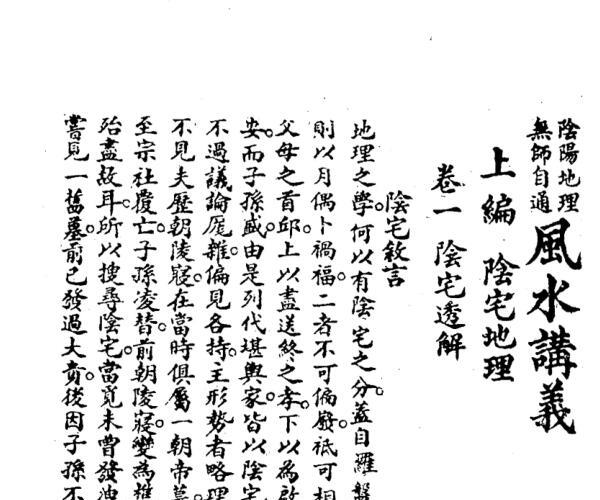 陰陽地理
無師自通
風水講義
上編 陰宅地理
卷一 陰宅透解
陰宅敘言
地理之學。何以有陰宅之分。蓋自羅盤
則以月偶卜禍福。二者不可偏廢。祇可相
父母之首邱。上以盡送終之孝。下以為啟
安。而子孫盛。由是列代堪輿家。皆以陰宅
不過議論厖雜。偏見各持。主形勢者略理
不見夫歷朝陵寢。在當時俱屬一朝帝
至宗社覆亡。子孫凌替。前朝陵寢。變為
殆盡。故耳。所以搜尋陰宅。當覓未曾發
嘗見一舊墓。前已發過大貴。後因子孫不